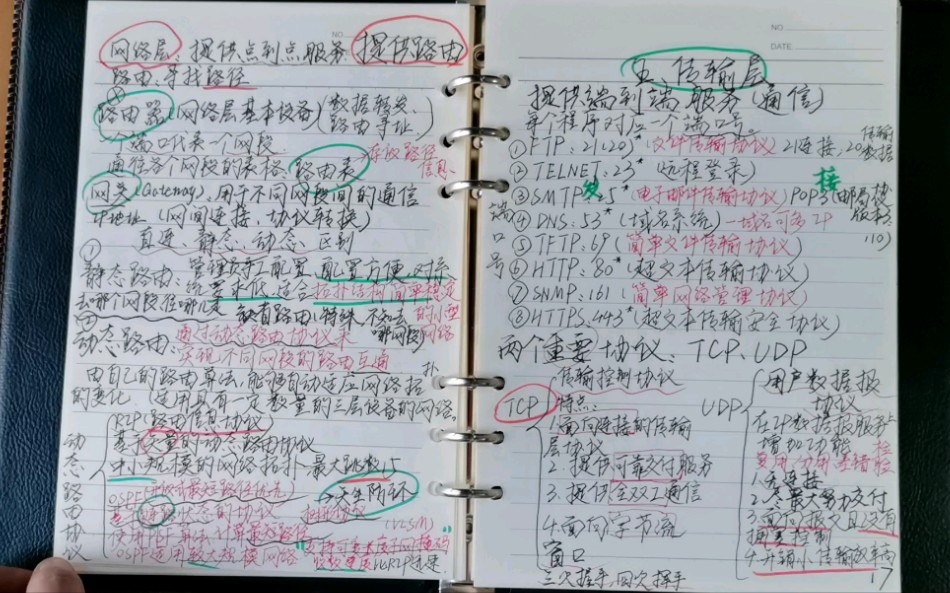 NO
网络层：提供点到点服务 提供路由
路由：寻找路径
路由器(网络层基本设备)(数据转发、路由寻址)
个端口代表一个网段
通往各个网段的表格，路由表 存放路径信息
网关(Gateway)，用于不同网段间的通信
IP地址（网间连接、协议转换）
直连、静态、动态、区别
①
静态路由：管理员手工配置，配置方便，对系统要求低，适合拓扑结构简单稳定的小型网络
去哪个网段经哪儿是
默认路由(特殊，不知去哪网段)
②
动态路由：通过动态路由协议来
实现不同网段的路由互通
由自己的路由算法，能够自动适应网络拓扑
的变化，适用具有一定数量的三层设备的网络。
动态路由协议
RIP(路由信息协议
基于矢量的动态路由协议
中小规模的网络拓扑·最大跳数15
OSPF 开放式最短路径优先 →天生防环
链路状态的协议 (VLSM)
使用SPF算法 计算最短路径
OSPF适用较大规模网络 "支持可变长度子网掩码"
收敛速度比RIP迅速
NO
DATE
五、传输层
提供端到端服务(通信)
每个程序对应一个端口号
端口号
①FTP：21(20)*(文件传输协议) 21连接，20传输数据
②TELNET：23*(远程登录)
③SMTP 发：25*(电子邮件传输协议) POP3 接(邮局协议版本3：110)
④DNS：53*(域名系统)一域名可多IP
⑤TFTP：69(简单文件传输协议)
⑥HTTP：80*(超文本传输协议)
⑦SNMP：161(简单网络管理协议)
⑧HTTPS，443*(超文本传输安全协议)
两个重要协议：TCP、UDP
TCP
传输控制协议
特点：
1.面向连接的传输
层协议
2.提供可靠交付服务
3.提供全双工通信
4.面向字节流
窗口
三次握手，四次挥手
UDP
用户数据报
协议
在IP数据报服务上
增加功能 检
复用/分用 差错验
1.无连接
2.尽最大努力交付
3.面向报文且没有
拥塞控制
4.开销小传输效率高
17